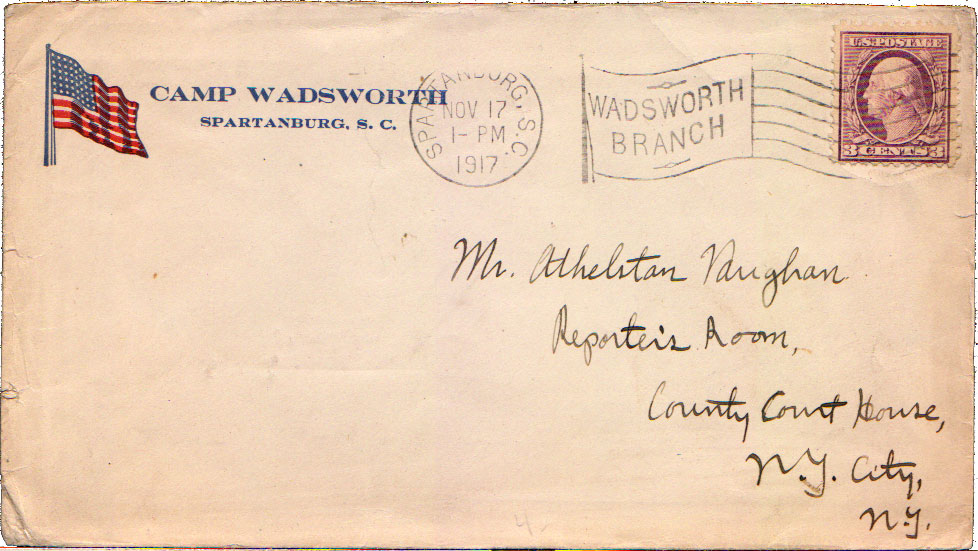 CAMP WADSWORTH
SPARTANBURG, S. C.
SPARTANBURG, S.C.
NOV 17
1-PM
1917
WADSWORTH
BRANCH
U.S. POSTAGE
3 CENTS 3
Mr. Athelstan Vaughan
Reporter's Room,
County Court House,
N.Y. City,
N.Y.